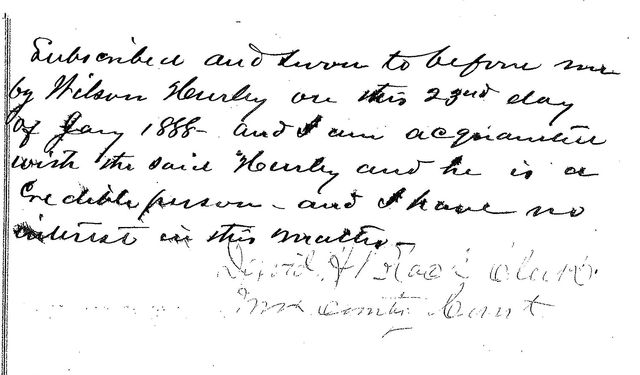 Subscribed and sworn to before me
by Wilson Hurley on this 23rd day
of Jany 1888 - and I am acquainted
with the said Hurley and he is a
Credible person - and I have no
interest in this matter -
David H Clerk
County Court